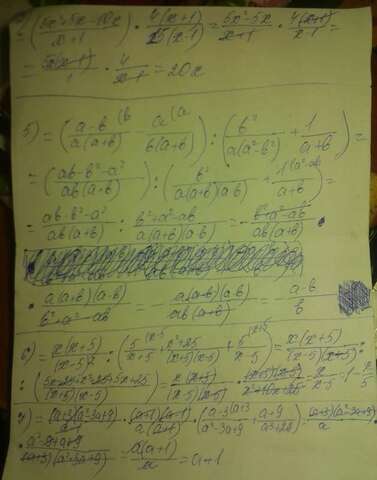 = (5x²+5x-10x / x+1) · 4(x+1) / 25(x-1) = 5x²-5x / x+1 · 4(x+1) / =
= 5x(x-1) / · 4 / x-1 = 20x
5) = (a-b (b / a(a+b) - a (a / b(a+b)) : (b² / a(a²-b²) + 1 / a+b) =
= (ab-b²-a² / ab(a+b)) : (b² / a(a+b)(a-b) + 1(a²-ab / a+b) =
= ab-b²-a² / ab(a+b) : b²+a²-ab / a(a+b)(a-b) = - b²+a²-ab / ab(a+b) ·
· a(a+b)(a-b) / b²+a²-ab = - a(a+b)(a-b) / ab(a+b) = - a-b / b
6) = x(x+5) / (x-5)² : (5 (x-5 / x+5 + x²+25 / (x+5)(x-5) + 5 (x+5 / x-5) = x(x+5) / (x-5)(x-5) :
: (5x-25+x²+25+5x+25 / (x+5)(x-5)) = x(x+5) / (x-5)(x-5) · (x+5)(x-5) / x²+10x+25 = x / x-5
7) = (a+3)(a²-3a+9) / a · (a+1)(a-1) / a(a-1) · (a-3 (a+3 / a²-3a+9 + a+9 / a³+27) = (a+3)(a²-3a+9) / a ·
· a²-9+a+9 / (a+3)(a²-3a+9) = a(a+1) / a = a+1